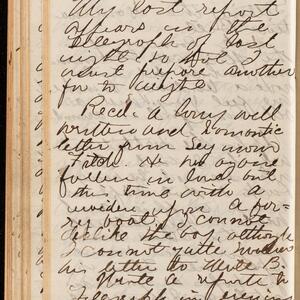 My last report
appears in the
Telegraph of last
night so that I
must prepare another
for to night
Recd. a long well
written and romantic
letter from Seymour
Fitch. He has again
fallen in love, but
this time with a
widow upon a fer-
ry boat. I cannot
dislike the boy, although
I cannot quite
his letter to Aunt B.
Write a report to
Telegraph in evening